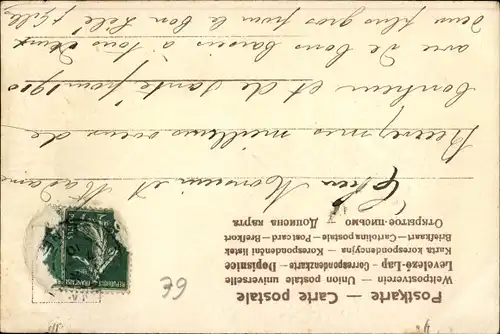 Postkarte — Carte postale
Weltpostverein — Union postale universelle
Levelező-Lap — Correspondenzkarte — Dopisnice
Karta korespondencyjna — Korespondenční listek
Briefkaart — Cartolina postale — Postcard — Brefkort
Открытое письмо — Дописна карта
Cher Monsieur et Madame
Recevez mes meilleurs voeux de
bonheur et de santé pour 1910
avec de bons baisers à tous deux
deux plus gros pour la bon Lélé
RÉPUBLIQUE FRANÇAISE
6E